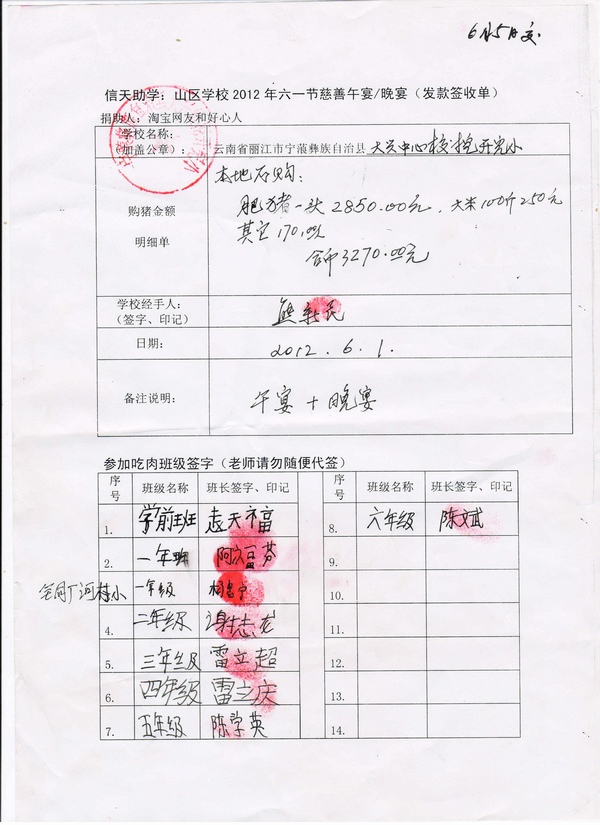 6月5日交
信天助学：山区学校 2012 年六一节慈善午宴/晚宴（发款签收单）
捐助人：淘宝网友和好心人
学校名称：
（加盖公章）：
云南省丽江市宁蒗彝族自治县 大兴中心校 开完小
购猪金额
明细单
本地采购：
肥猪一头 2850.00元、大米100斤250元
其它170.00
合计3270.00元
学校经手人：
（签字、印记）
熊新民
日期：
2012.6.1.
备注说明：
午宴+晚宴
参加吃肉班级签字（老师请勿随便代签）
序号 班级名称 班长签字、印记 序号 班级名称 班长签字、印记
1. 学前班 赵天福 8. 六年级 陈文斌
2. 一年 阿 芬 9.
河村小 一年级 10.
4. 二年级 谢志龙 11.
5. 三年级 雷立超 12.
6. 四年级 雷立庆 13.
7. 五年级 陈学英 14.